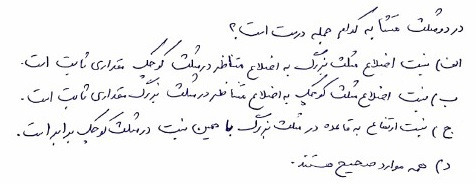 در دو مثلث متشابه کدام جمله درست است؟
الف) نسبت اضلاع مثلث بزرگ به اضلاع متناظر در مثلث کوچک مقداری ثابت است.
ب) نسبت اضلاع مثلث کوچک به اضلاع متناظر در مثلث بزرگ مقداری ثابت است.
ج) نسبت ارتفاع به قاعده در مثلث بزرگ با همین نسبت در مثلث کوچک برابر است.
د) همه موارد صحیح هستند.